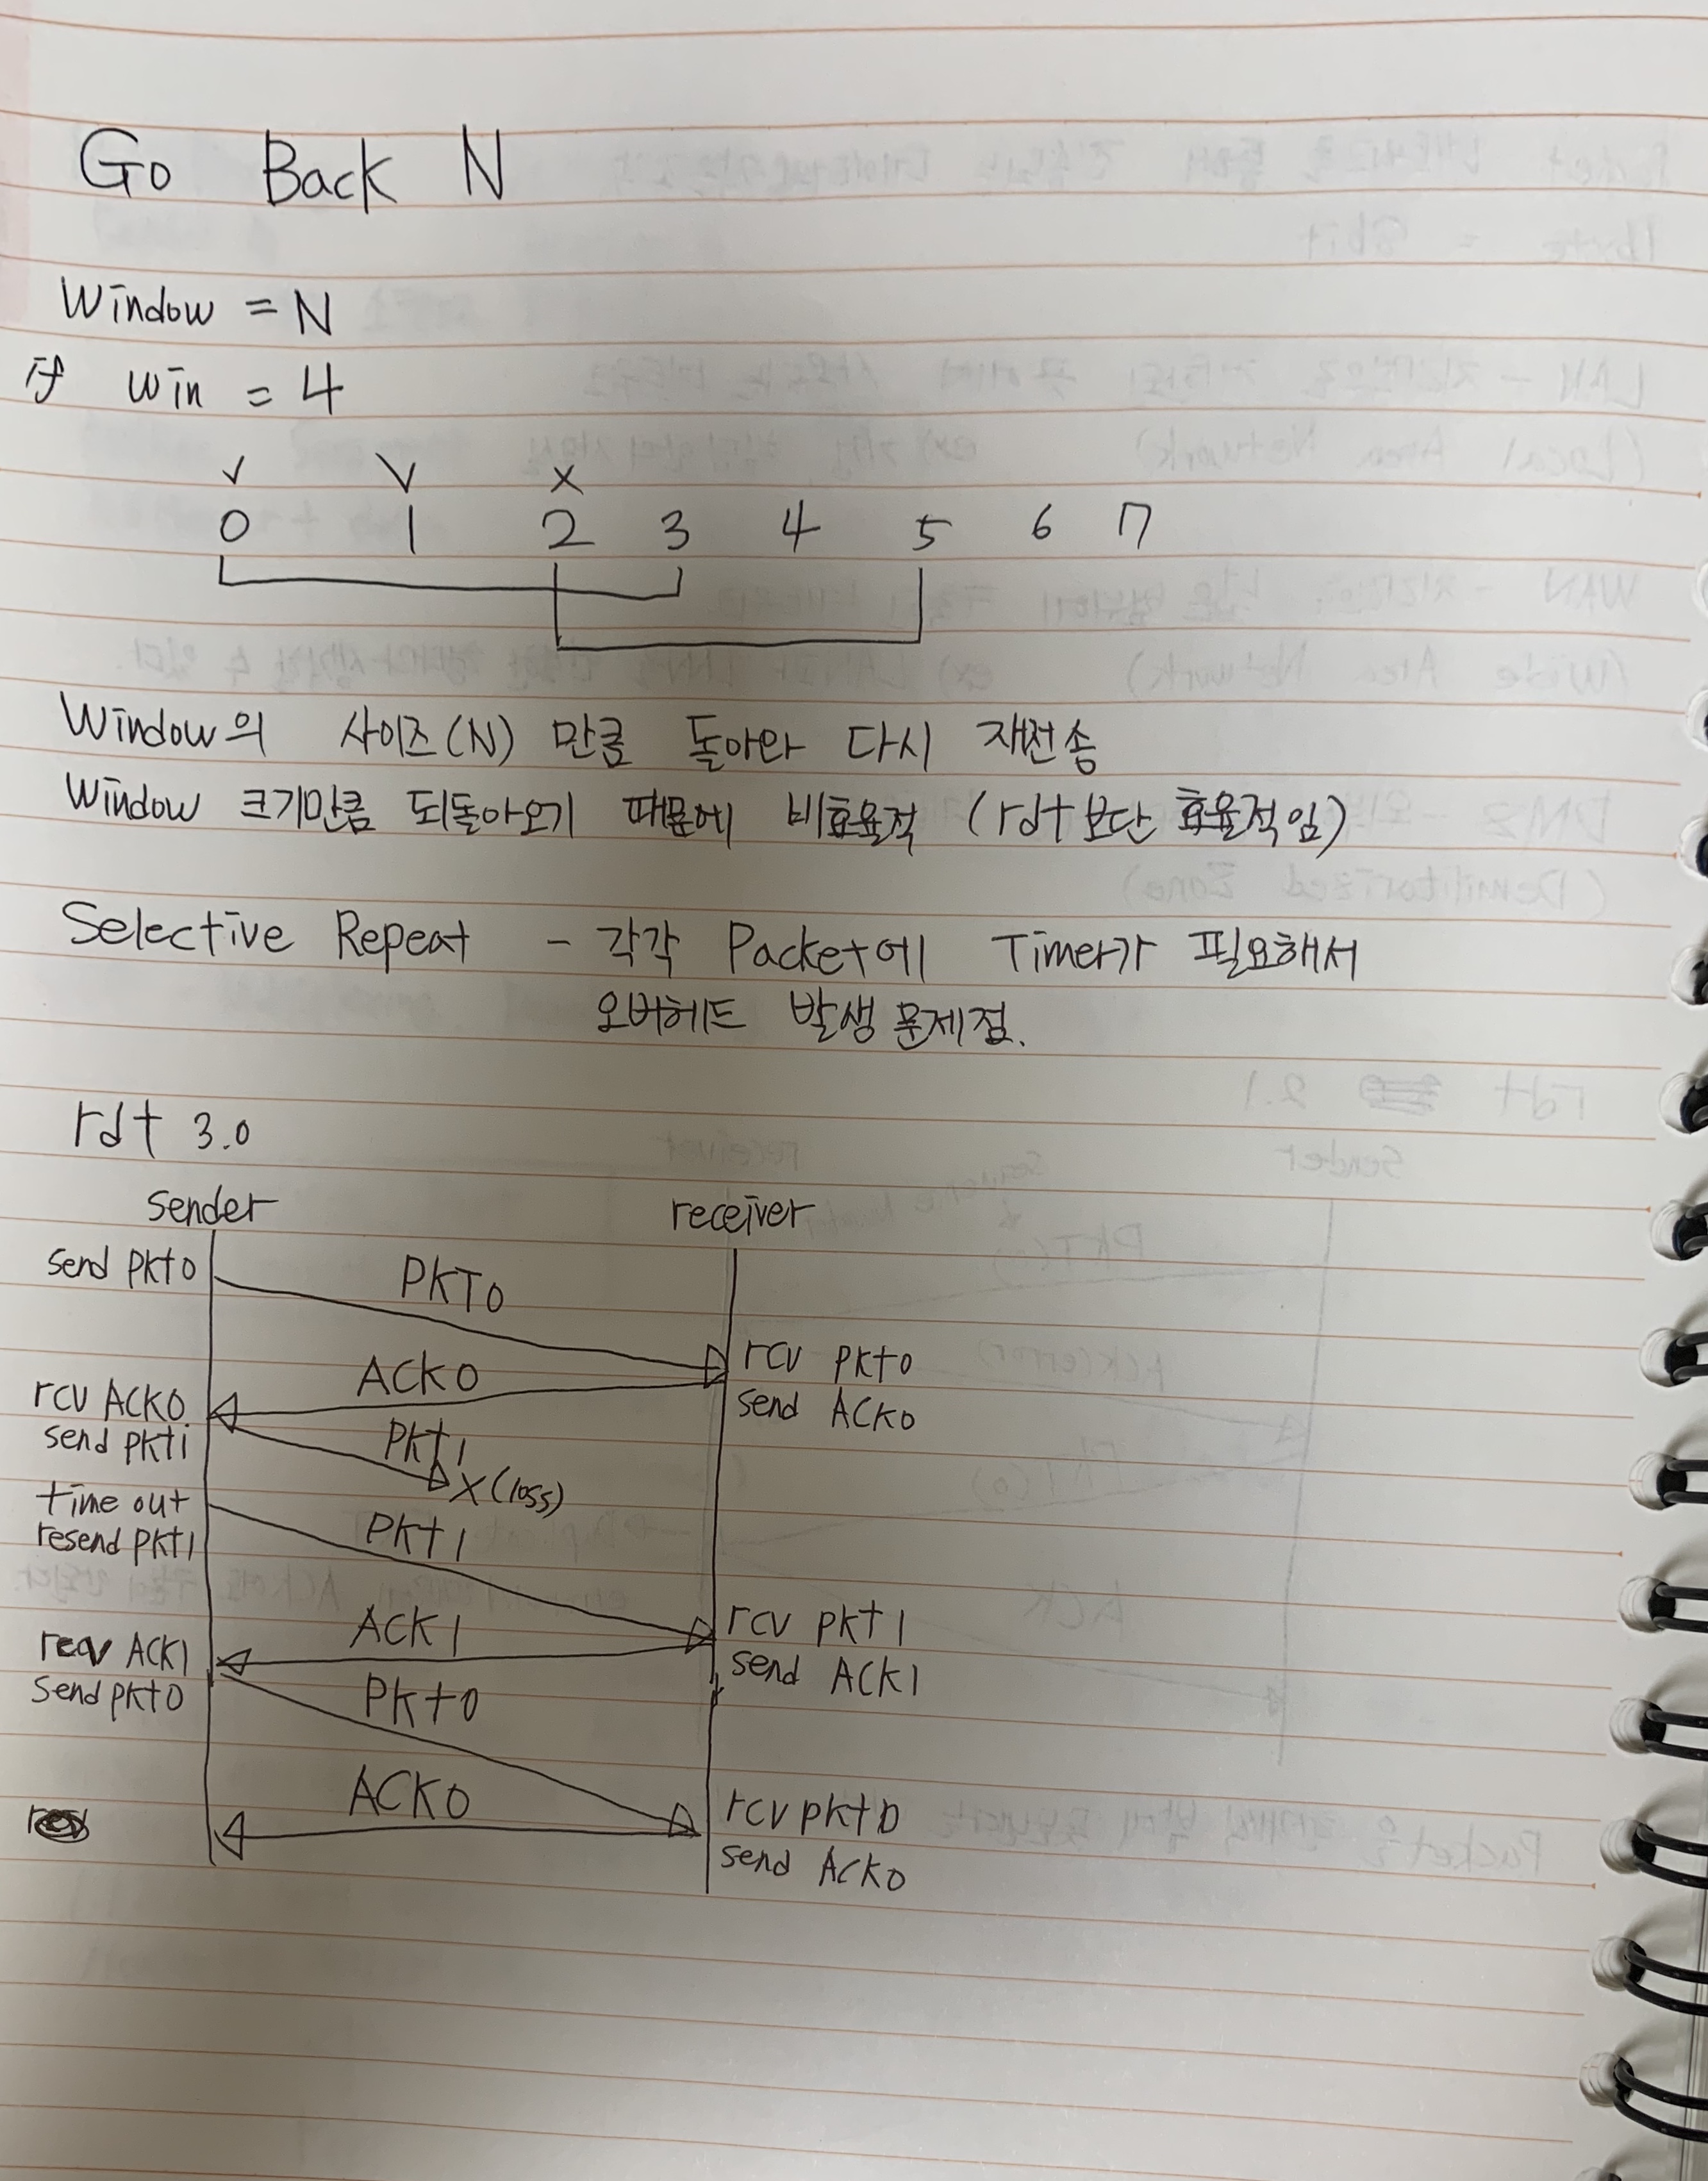 Go Back N
Window = N
if win = 4
v v x
0 1 2 3 4 5 6 7
Window의 사이즈(N) 만큼 돌아와 다시 재전송
Window 크기만큼 되돌아오기 때문에 비효율적 (rdt보단 효율적임)
Selective Repeat - 각각 Packet에 Timer가 필요해서
오버헤드 발생 문제점.
rdt 3.0
sender receiver
send pkt0
PKT0
rcv pkt0
send ACK0
ACK0
rcv ACK0
send pkt1
pkt1
x (loss)
time out
resend pkt1
pkt1
rcv pkt1
send ACK1
ACK1
recv ACK1
send pkt0
pkt0
rcv pkt0
send ACK0
ACK0